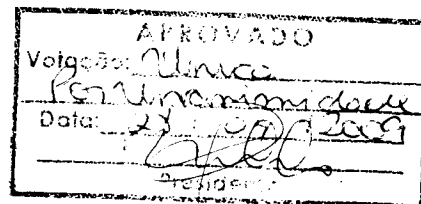 APROVADO
Votação: Única
Por Unanimidade
Data: 2009
Presidente